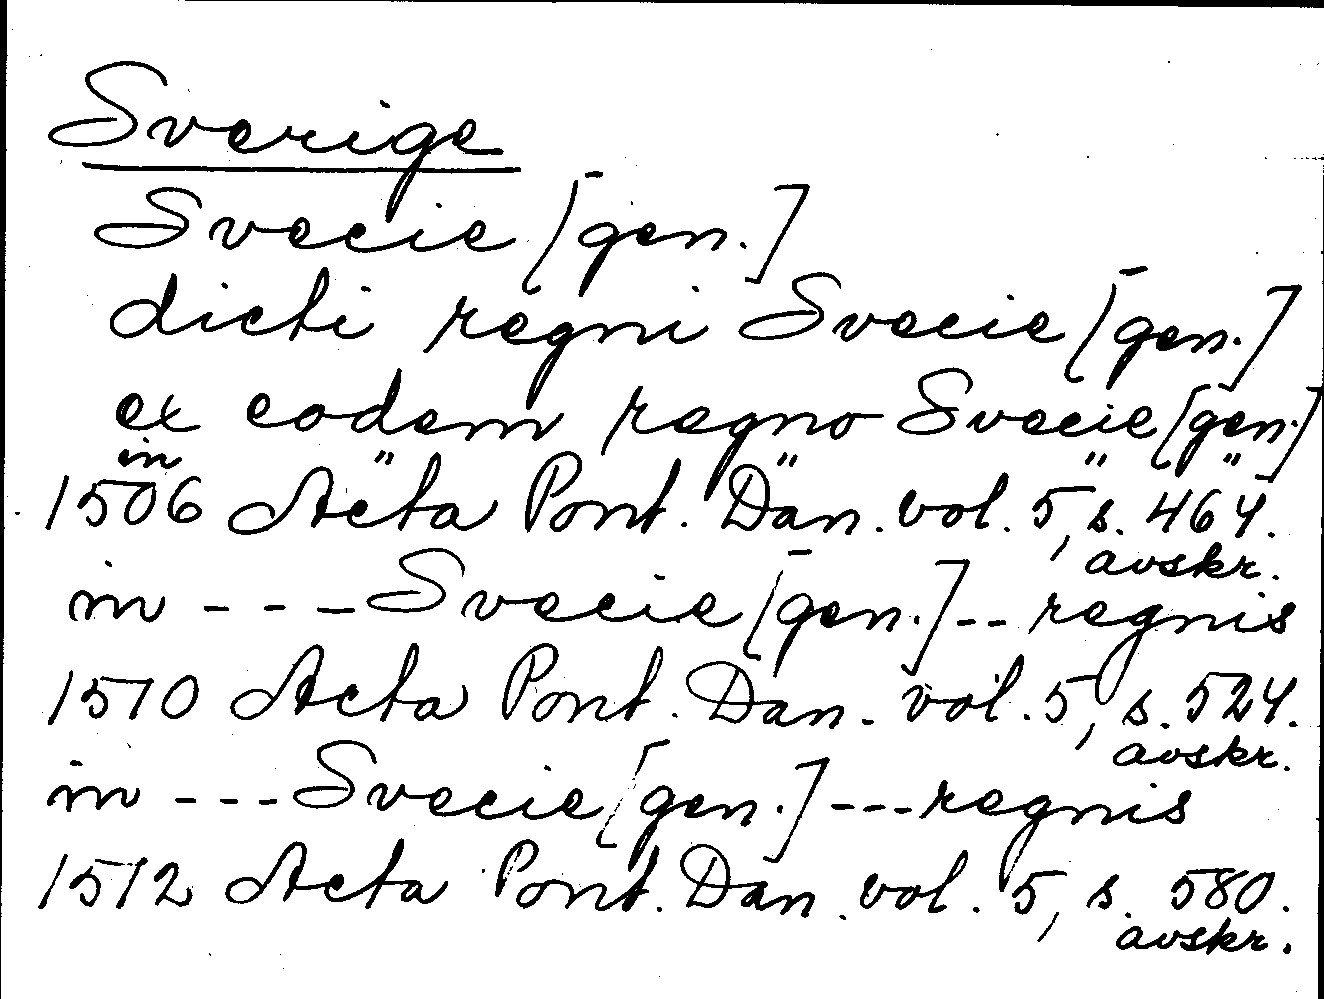 Sverige
Svecie [gen.]
dicti regni Svecie [gen.]
ex eodem regno Svecie [gen.]
in " " " "
1506 Acta Pont. Dan. vol. 5, s. 464.
avskr.
in --- Svecie [gen.] -- regnis
1510 Acta Pont. Dan. vol. 5, s. 524.
avskr.
in --- Svecie [gen.] --- regnis
1512 Acta Pont. Dan. vol. 5, s. 580.
avskr.